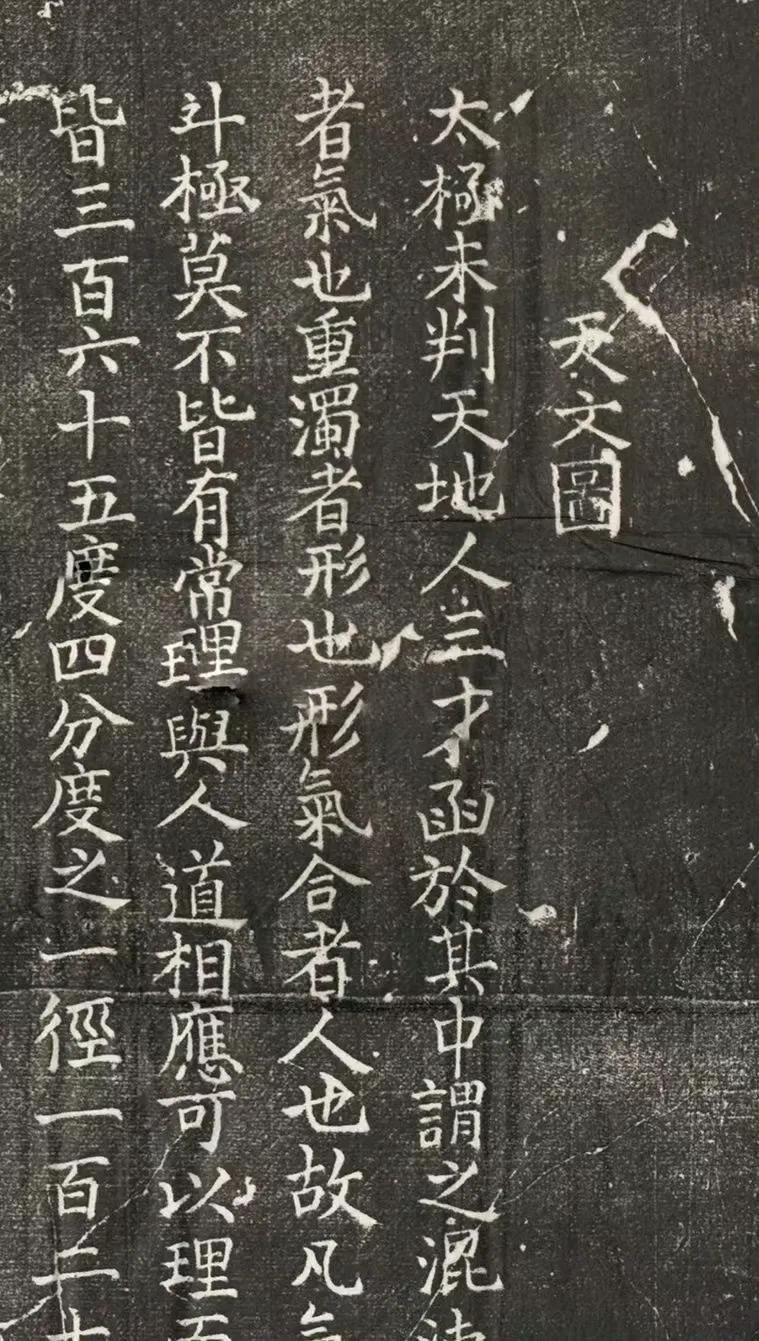 天文圖
太極未判天地人三才函於其中謂之混沌
者氣也重濁者形也形氣合者人也故凡氣
斗極莫不皆有常理與人道相應可以理而
皆三百六十五度四分度之一徑一百二十